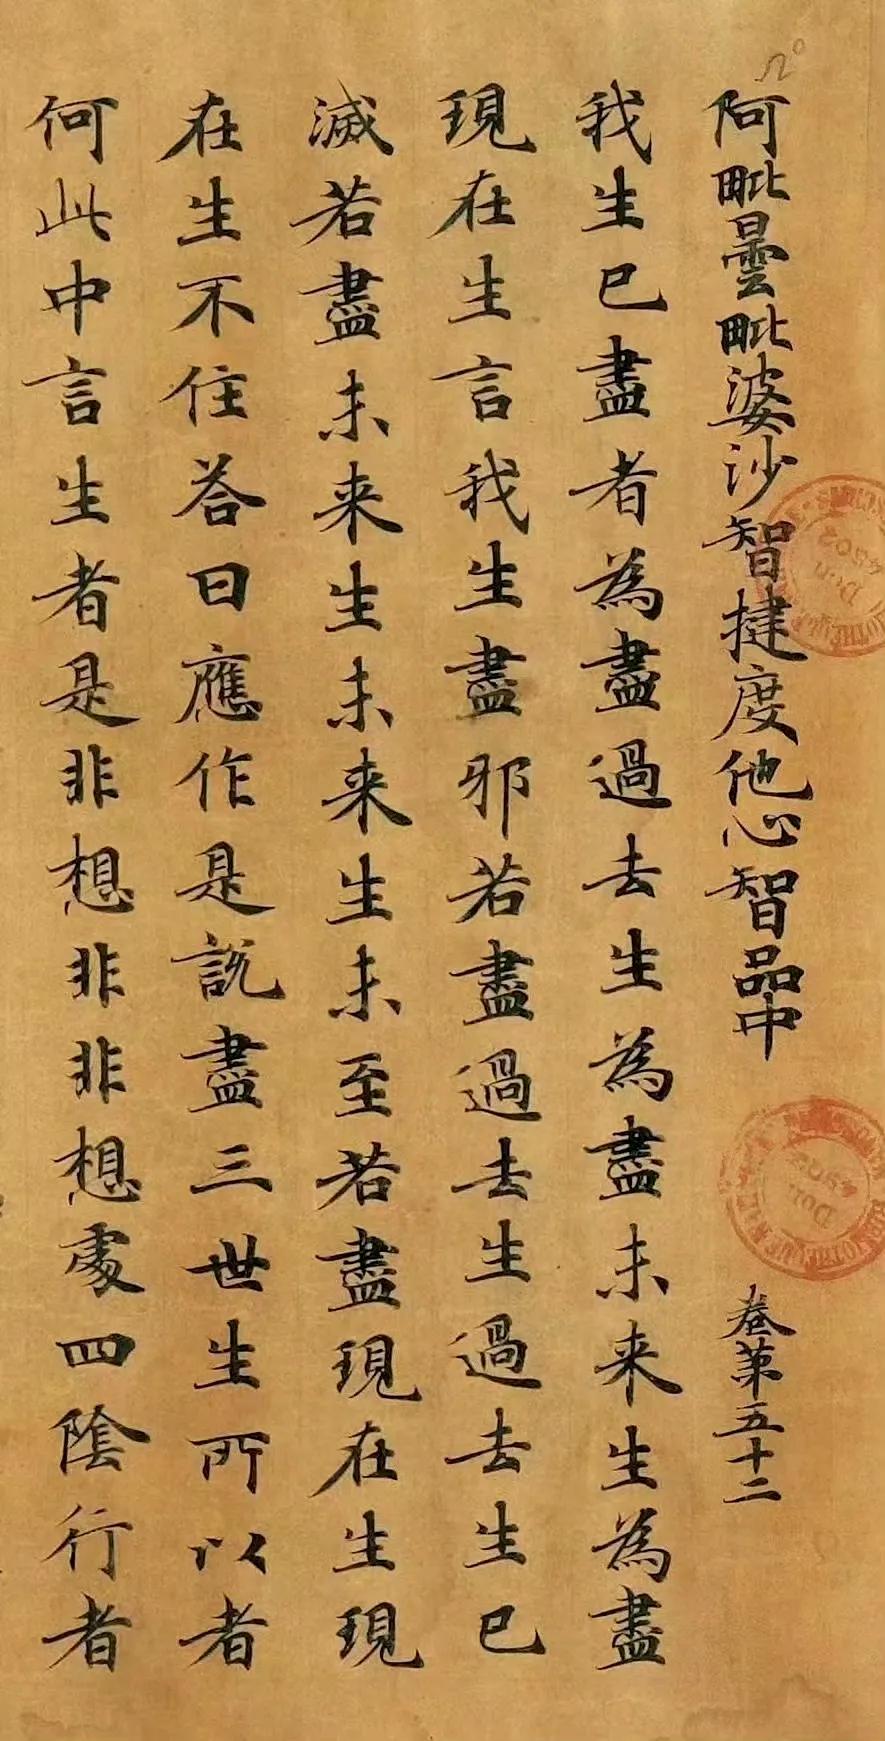 阿毗曇毗婆沙智揵度他心智品中 卷第五十二
我生已盡者為盡過去生為盡未来生為盡
現在生言我生盡邪若盡過去生過去生已
滅若盡未来生未来生未至若盡現在生現
在生不住荅曰應作是說盡三世生所以者
何此中言生者是非想非非想處四陰行者